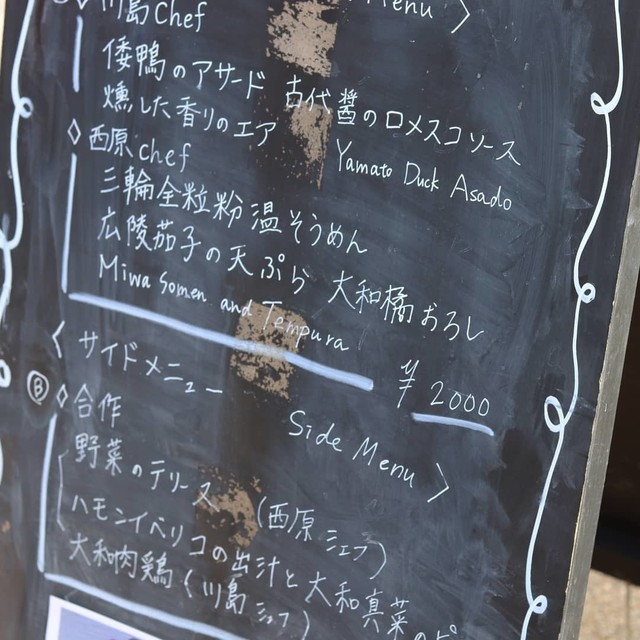 川島Chef
Menu 〉
倭鴨のアサード 古代醤のロメスコソース
燻した香りのエア
Yamato Duck Asado
◇西原chef
三輪全粒粉 温そうめん
広陵茄子の天ぷら 大和橘おろし
Miwa Somen and Tempura
¥2000
〈 サイドメニュー
Side Menu 〉
Ⓑ◇合作
野菜のテリース (西原シェフ)
ハモンイベリコの出汁と大和真菜の
大和肉鶏 (川島シェフ)